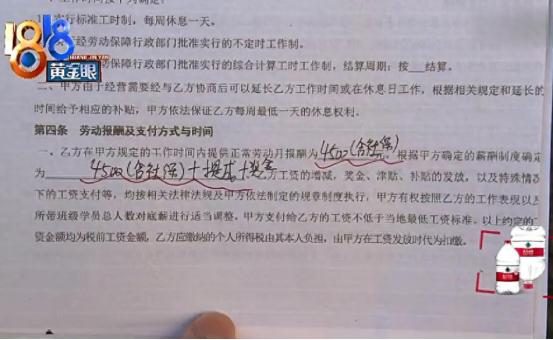 1818
HUANG JIN YAN
黄金眼
实行标准工时制,每周休息一天。
经劳动保障行政部门批准实行的不定时工作制。
劳动保障行政部门批准实行的综合计算工时工作制,结算周期:按___结算。
二、甲方由于经营需要经与乙方协商后可以延长乙方工作时间或在休息日工作,根据相关规定和延长的
时间给予相应的补贴,甲方依法保证乙方每周最低一天的休息权利。
第四条 劳动报酬及支付方式与时间
一、乙方在甲方规定的工作时间内提供正常劳动月报酬为4500(含社保),根据甲方确定的薪酬制度确定
为4500(含社保)+提成+奖金 乙方工资的增减,奖金、津贴、补贴的发放,以及特殊情况
下的工资支付等,均按相关法律法规及甲方依法制定的规章制度执行,甲方有权按照乙方的工作表现以及
所带班级学员总人数对底薪进行适当调整。甲方支付给乙方的工资不低于当地最低工资标准。以上约定的工
资金额均为税前工资金额,乙方应缴纳的个人所得税由其本人负担,由甲方在工资发放时代为扣缴。